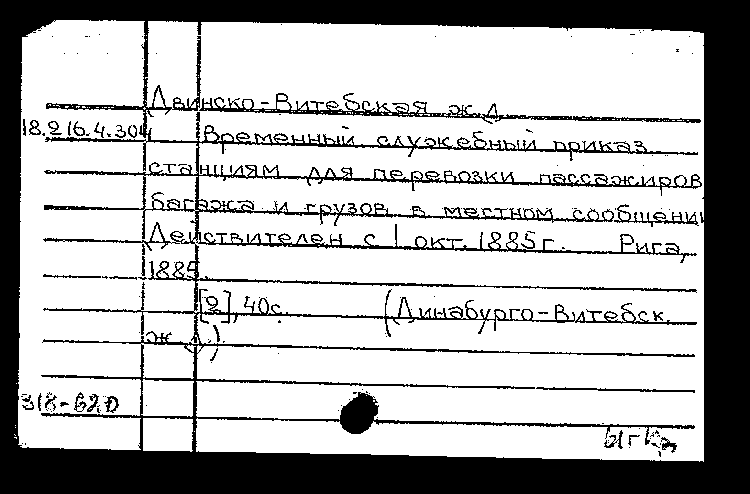 Двинско-Витебская ж.д.
18.216.4.304 Временный служебный приказ
станциям для перевозки пассажиров
багажа и грузов в местном сообщении
Действителен с 1 окт. 1885 г. Рига,
1885.
[2], 40с. (Динабурго-Витебск.
ж.д.)
318-620